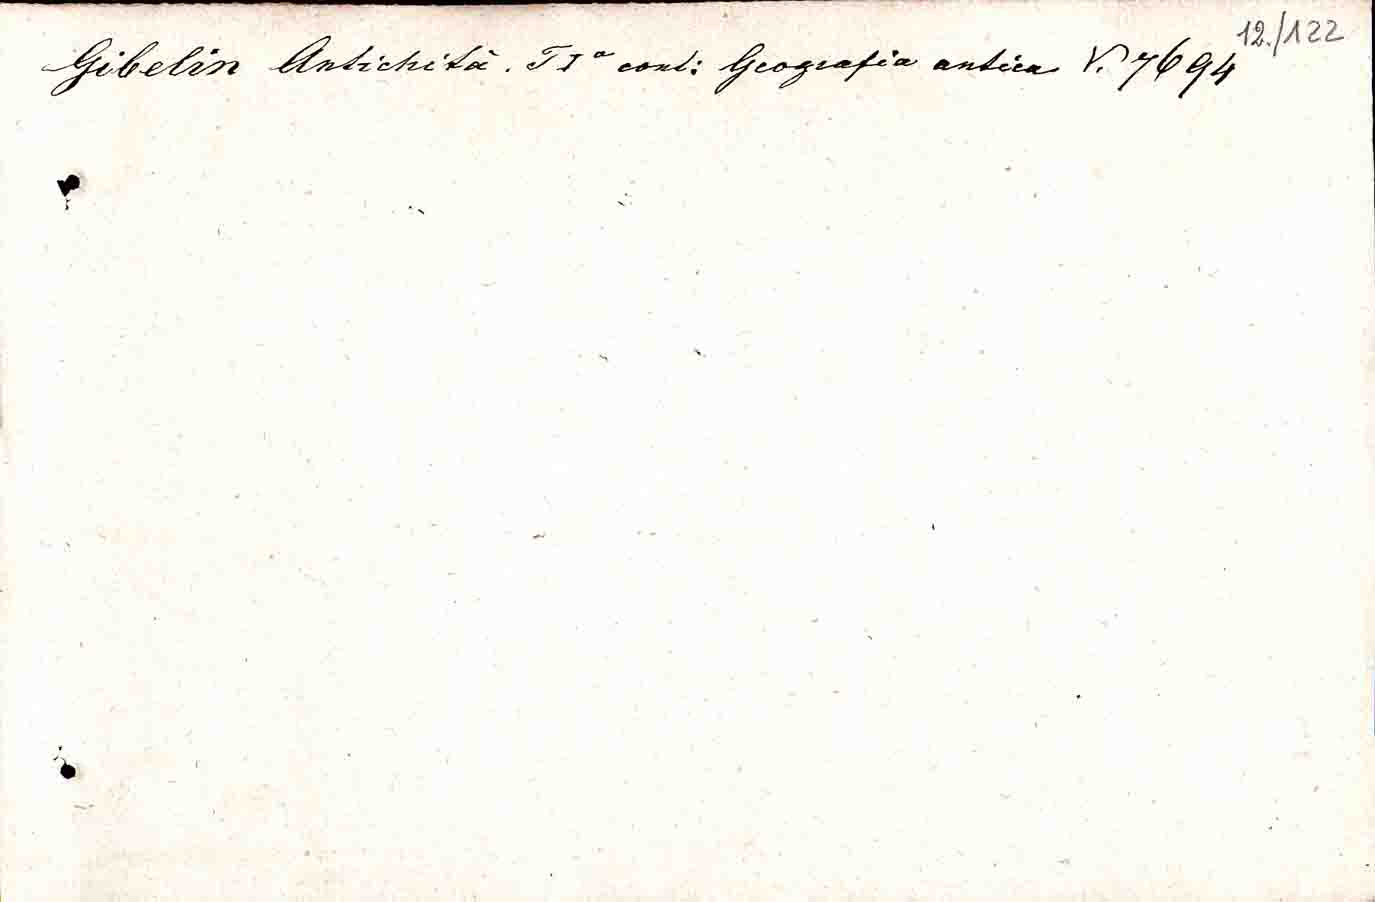 12./122
Gibelin Antichità. T Iº cont: Geografia antica V. 7694